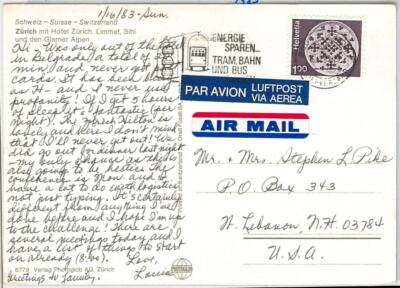 1/16/83 - Sun.
Schweiz - Suisse - Switzerland
Zürich mit Hotel Zürich, Limmat, Sihl
und den Glarner Alpen
Hi - Was only out of the
in Belgrade (a total of
min) and never got
cards! It has been
as H - and I never use
profanity! If I get 5 hours
of sleep it's fantastic (per
night)! The Zurich Hilton is
lovely and here I don't mind
that I'll never get out! We
did go out for dinner last night
- my only chance as this is
also going to be hectic. The
conference is Mon. and we
have a lot to do with logistics
not just typing. It's certainly
different than anything I've
done before and I hope I'm up
to the challenge! There are
several meetings today and I
have a list of things to start
on already (8:00). Love,
Louise
Greetings to family.
6779 Verlag Photoglob AG, Zürich
PHOTOGLOB
ENERGIE
SPAREN...
TRAM, BAHN
UND BUS
Helvetia
100
PAR AVION LUFTPOST
VIA AEREA
AIR MAIL
Mr. & Mrs. Stephen L. Pike
P.O. Box 343
W. Lebanon, N.H. 03784
U.S.A.